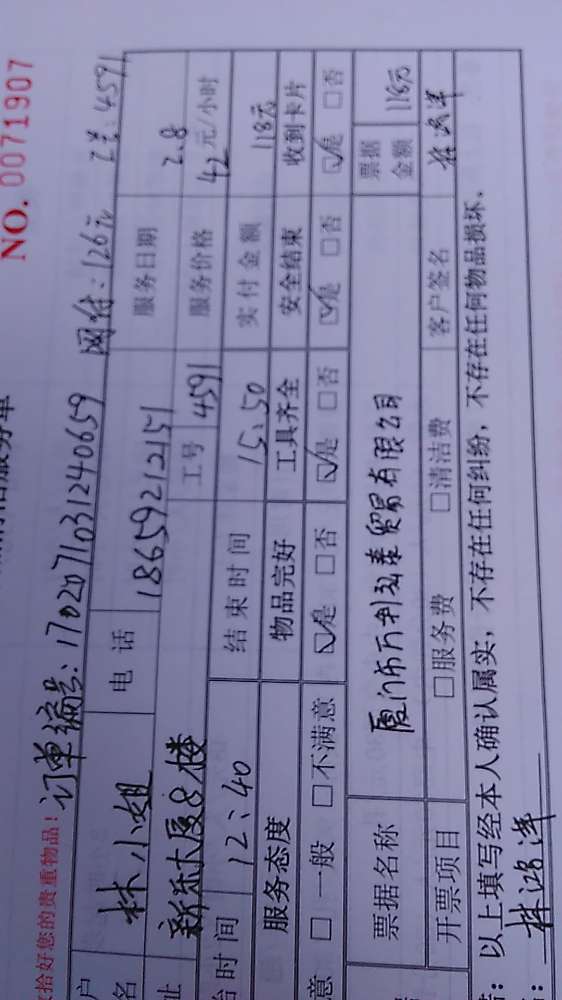 NO. 0071907
拾好您的贵重物品! 订单编号: 1702071031240659 网付: 126元 工号: 4591
名 林小姐 电话 18659212151 服务日期 2.8
址 新乐大厦8楼 工号 4591 服务价格 42元/小时
始时间 12:40 结束时间 15:50 实付金额 118元
服务态度 物品完好 工具齐全 安全结束 收到卡片
意 □一般 □不满意 ☑是 □否 ☑是 □否 ☑是 □否 ☑是 □否
票据名称 厦门市万利弘泰贸易有限公司 票据金额 118元
开票项目 □服务费 □清洁费 客户签名
: 以上填写经本人确认属实, 不存在任何纠纷, 不存在任何物品损坏.